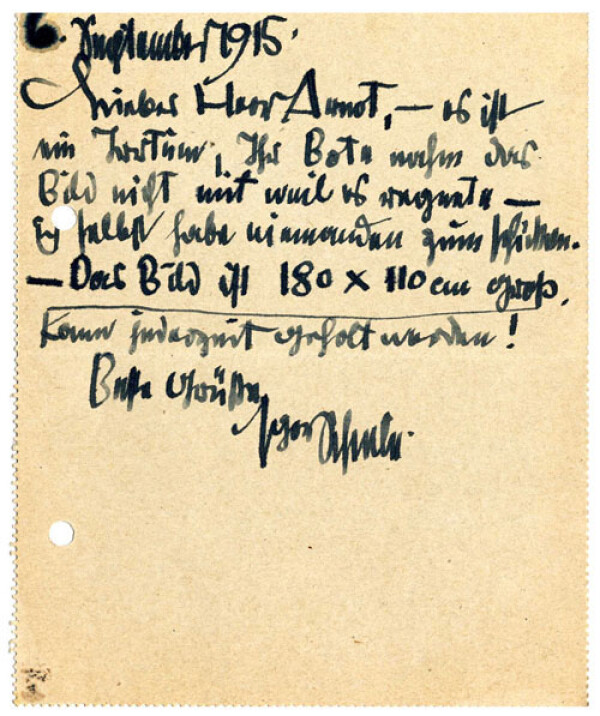 6. September 1915.
Lieber Herr Arnot, — es ist
ein Irrtum, Ihr Bote nahm das
Bild nicht mit weil es regnete —
Ich selbst habe niemanden zum schicken.
— Das Bild ist 180 x 110 cm groß.
Kann jederzeit geholt werden!
Beste Grüße
Egon Schiele.